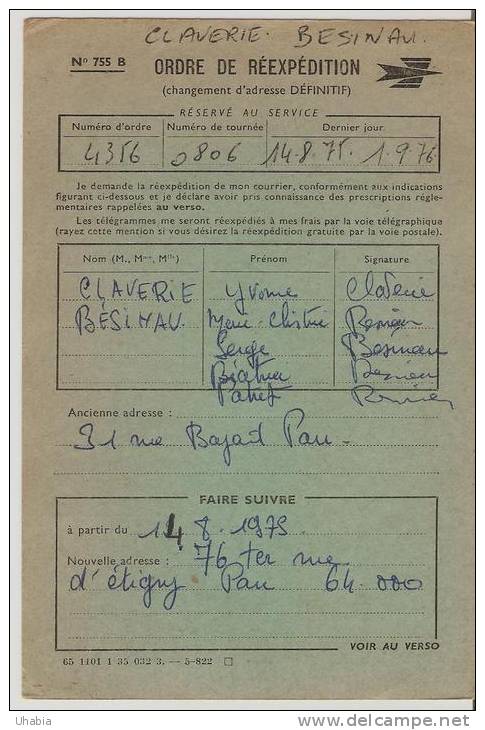 CLAVERIE. BESINAU.
Nº 755 B ORDRE DE RÉEXPÉDITION
(changement d'adresse DÉFINITIF)
RÉSERVÉ AU SERVICE
Numéro d'ordre Numéro de tournée Dernier jour
4356 0806 14.8.75. 1.9.76
Je demande la réexpédition de mon courrier, conformément aux indications
figurant ci-dessous et je déclare avoir pris connaissance des prescriptions régle-
mentaires rappelées au verso.
Les télégrammes me seront réexpédiés à mes frais par la voie télégraphique
(rayez cette mention si vous désirez la réexpédition gratuite par la voie postale).
Nom (M., Mme, Mlle) Prénom Signature
CLAVERIE Yvonne Claverie
BÉSINAU. Marie-Christine Besinau
Serge Besinau
Béatrice Besinau
Patrick
Ancienne adresse :
31 rue Bayard Pau -
FAIRE SUIVRE
à partir du 14 8. 1975
Nouvelle adresse : 76 ter rue
d'étigny Pau 64.000
VOIR AU VERSO
65 1101 1 35 032 3. — 5-822
Uhabia delcampe.net